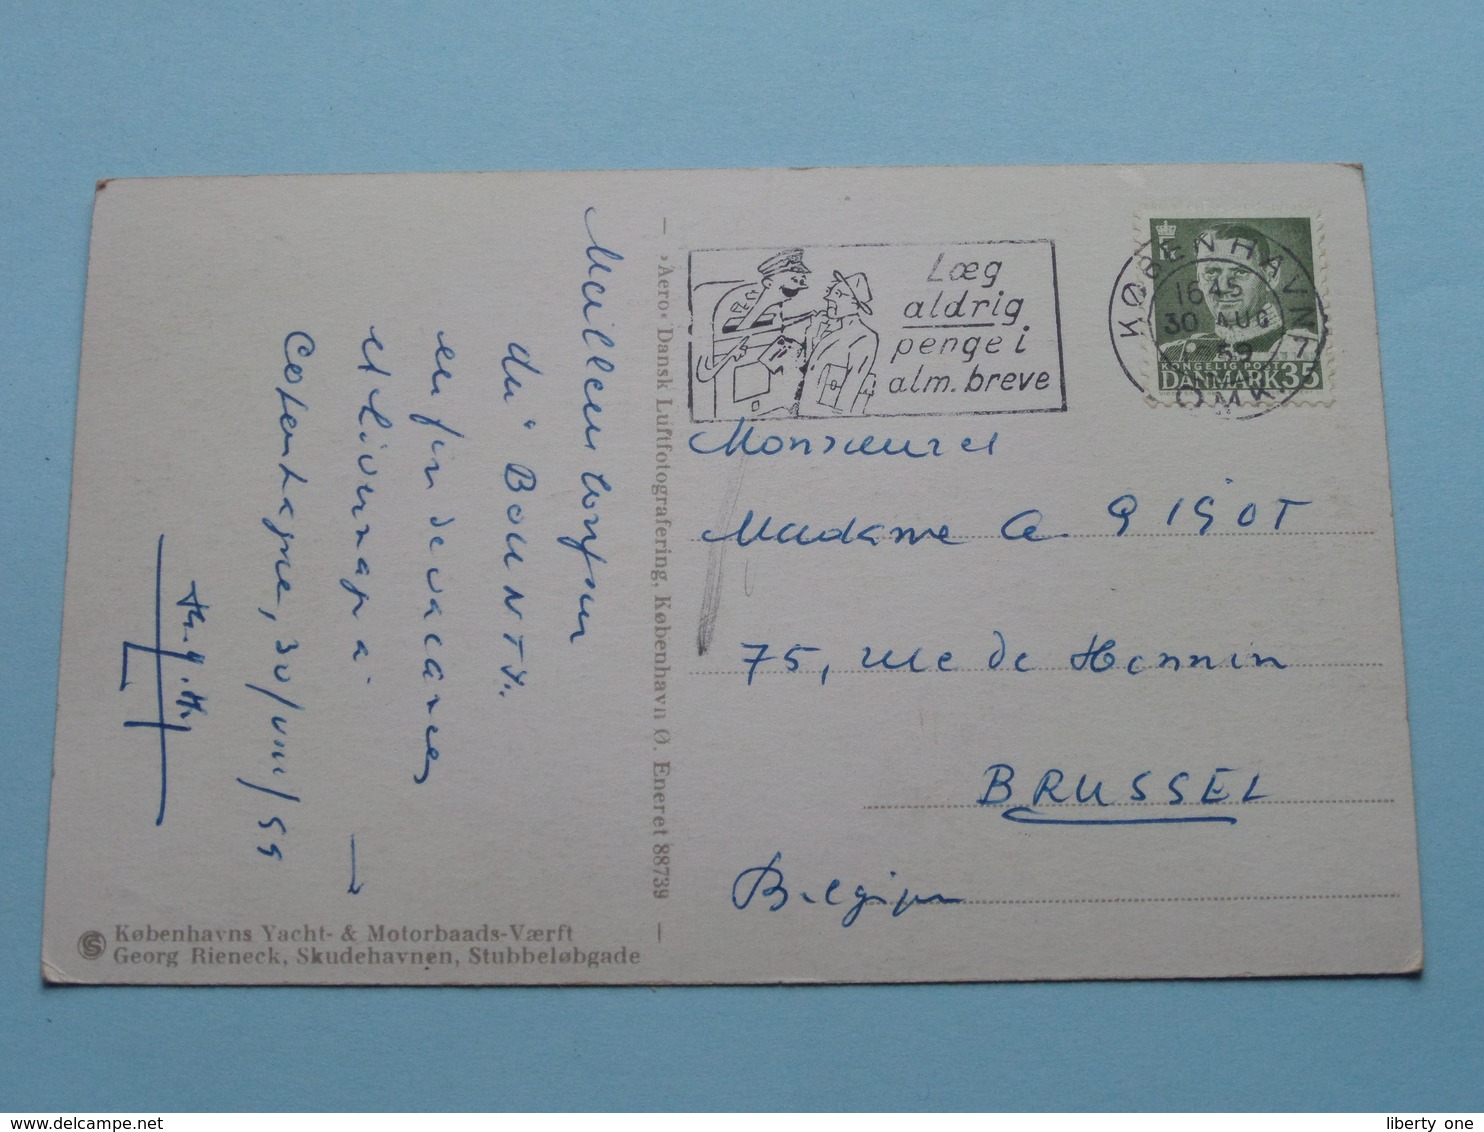 Meilleurs
du "BOUNTY".
en fin de vacances
et
à
Copenhague, 30/VIII/59
→
- »Aero« Dansk Luftfotografering, København Ø. Eneret 88739 -
Københavns Yacht- & Motorbaads-Værft
Georg Rieneck, Skudehavnen, Stubbeløbgade
Læg
aldrig
penge i
alm. breve
KØBENHAVN
1645
30 AUG
59
OMK. 7
KONGELIG POST
DANMARK 35
Monsieur et
Madame A. GIGOT
75, rue de Hennin
BRUSSEL
Belgien
liberty one